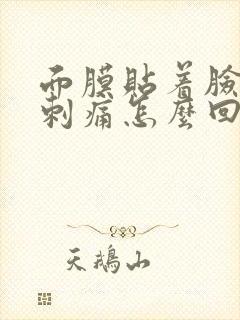 面膜貼着臉
刺痛怎麼回
天鵝山